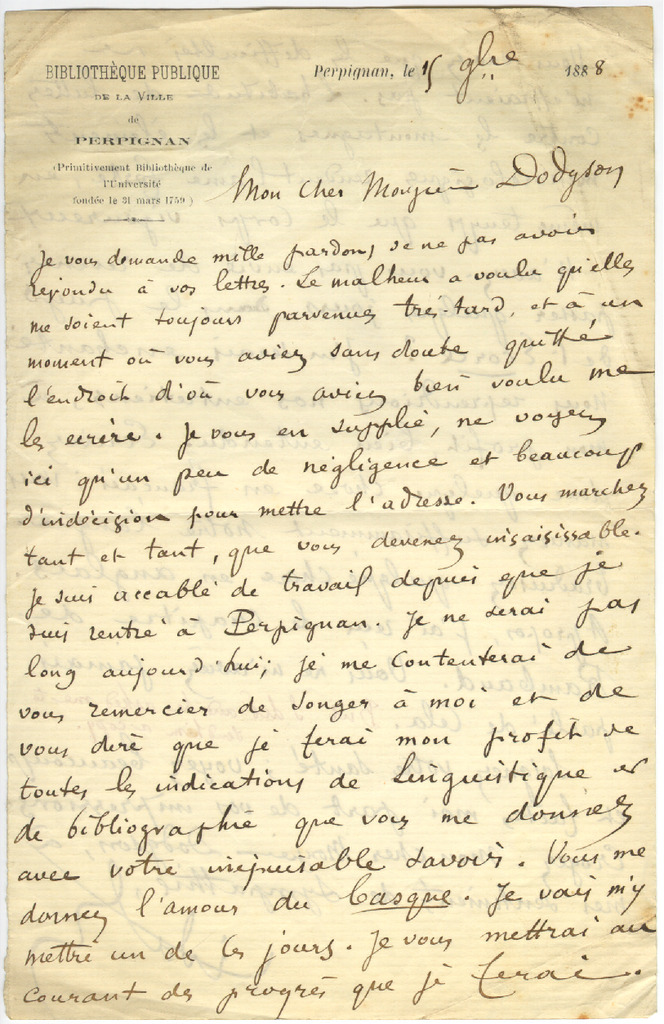 BIBLIOTHÈQUE PUBLIQUE
DE LA VILLE
de
PERPIGNAN
(Primitivement Bibliothèque de
l'Université
fondée le 31 mars 1759)
Perpignan, le 15 9bre 1888
Mon Cher Monsieur Dodgson
Je vous demande mille pardons de ne pas avoir
répondu à vos lettres. Le malheur a voulu qu'elles
me soient toujours parvenues très-tard, et à un
moment où vous aviez sans doute quitté
l'endroit d'où vous aviez bien voulu me
les écrire. Je vous en supplie, ne voyez
ici qu'un peu de négligence et beaucoup
d'indécision pour mettre l'adresse. Vous marchez
tant et tant, que vous devenez insaisissable.
Je suis accablé de travail depuis que je
suis rentré à Perpignan. Je ne serai pas
long aujourd'hui; je me contenterai de
vous remercier de songer à moi et de
vous dire que je ferai mon profit de
toutes les indications de linguistique et
de bibliographie que vous me donnez
avec votre inépuisable savoir. Vous me
donnez l'amour du basque. Je vais m'y
mettre un de ces jours. Je vous mettrai au
courant des progrès que je ferai.